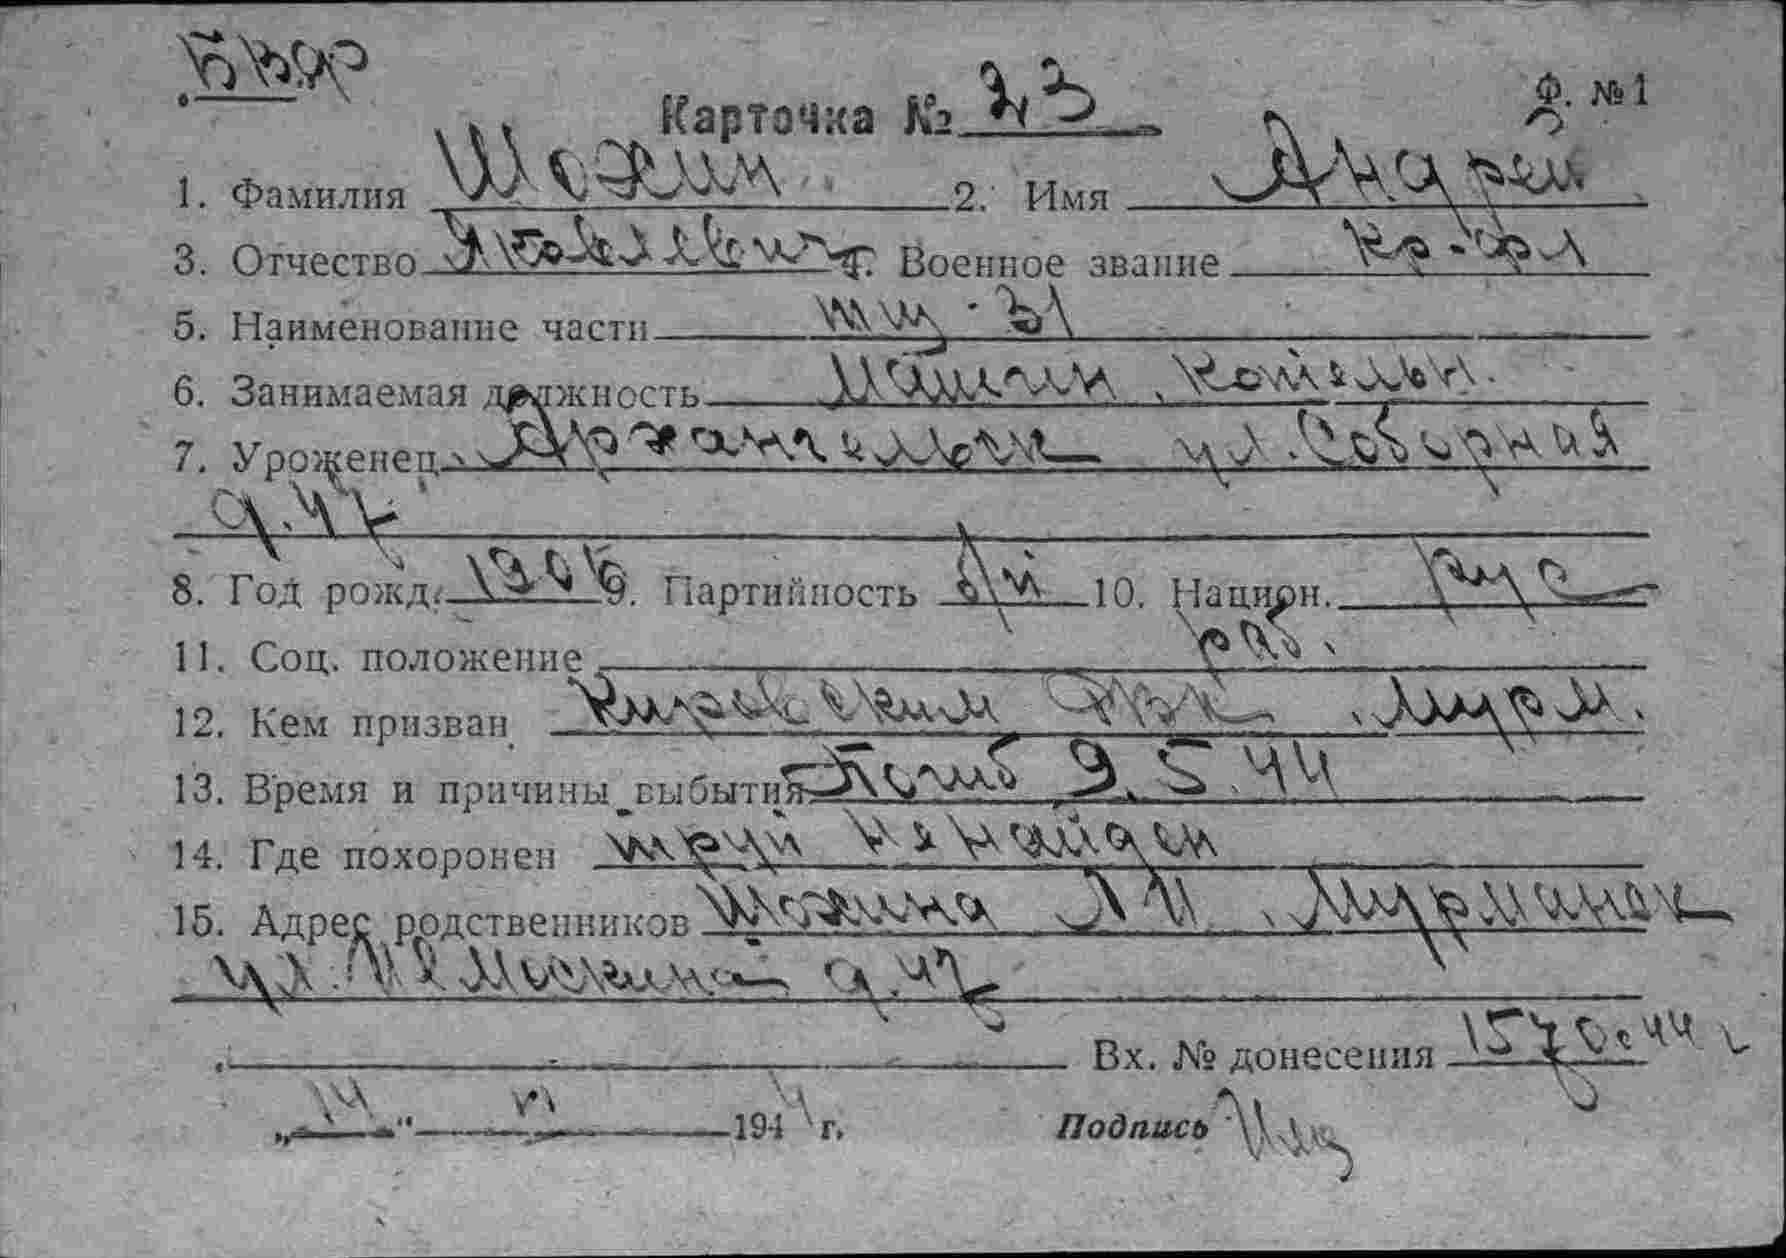 Карточка № 23 Ф. № 1
1. Фамилия Шохин 2. Имя Андрей
3. Отчество Яковлевич 4. Военное звание кр-фл
5. Наименование части тщ-31
6. Занимаемая должность Машин. Котельн.
7. Уроженец Архангельск ул. Соборная
д. 47
8. Год рожд. 1906 9. Партийность б/п 10. Национ. рус
11. Соц. положение раб.
12. Кем призван Кировским РВК Мурм.
13. Время и причины выбытия Погиб 9.5.44
14. Где похоронен труп не найден
15. Адрес родственников Шохина Мурманск
ул. д. 47
Вх. № донесения 1570с 44 г
„14“ VI 1944 г. Подпись